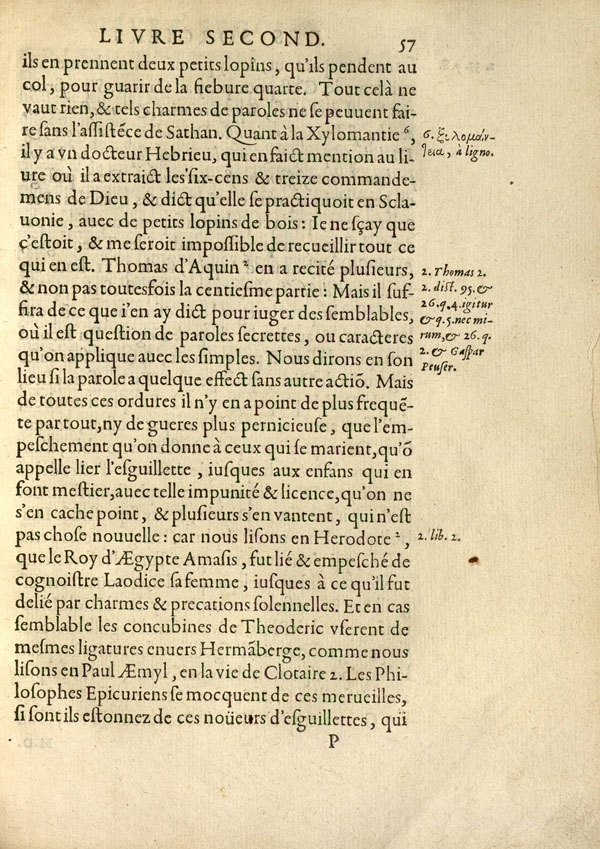 LIVRE SECOND. 57
ils en prennent deux petits lopins, qu'ils pendent au
col, pour guarir de la fiebure quarte. Tout celà ne
vaut rien, & tels charmes de paroles ne se peuuent fai-
re sans l'assistẽce de Sathan. Quant à la Xylomantie ⁶,
il y a vn docteur Hebrieu, qui en faict mention au li-
ure où il a extraict les six-cens & treize commande-
mens de Dieu, & dict qu'elle se practiquoit en Scla-
uonie, auec de petits lopins de bois: Ie ne sçay que
ç'estoit, & me seroit impossible de recueillir tout ce
qui en est. Thomas d'Aquin ² en a recité plusieurs,
& non pas toutesfois la centiesme partie: Mais il suf-
fira de ce que i'en ay dict pour iuger des semblables,
où il est question de paroles secrettes, ou caracteres
qu'on applique auec les simples. Nous dirons en son
lieu si la parole a quelque effect sans autre actiõ. Mais
de toutes ces ordures il n'y en a point de plus frequẽ-
te par tout, ny de gueres plus pernicieuse, que l'em-
peschement qu'on donne à ceux qui se marient, qu'õ
appelle lier l'esguillette, iusques aux enfans qui en
font mestier, auec telle impunité & licence, qu'on ne
s'en cache point, & plusieurs s'en vantent, qui n'est
pas chose nouuelle: car nous lisons en Herodote ²,
que le Roy d'Ægypte Amasis, fut lié & empesché de
cognoistre Laodice sa femme, iusques à ce qu'il fut
delié par charmes & precations solennelles. Et en cas
semblable les concubines de Theoderic vserent de
mesmes ligatures enuers Hermãberge, comme nous
lisons en Paul Æmyl, en la vie de Clotaire 2. Les Phi-
losophes Epicuriens se mocquent de ces merueilles,
si sont ils estonnez de ces noüeurs d'esguillettes, qui
P
6. ξυλομάν-
τεια, à ligno.
2. Thomas 2.
2. dist. 95. &
26. q. 4. igitur
& q. 5. nec mi-
rum, & 26. q.
2. & Gaspar
Peuser.
2. lib. 2.